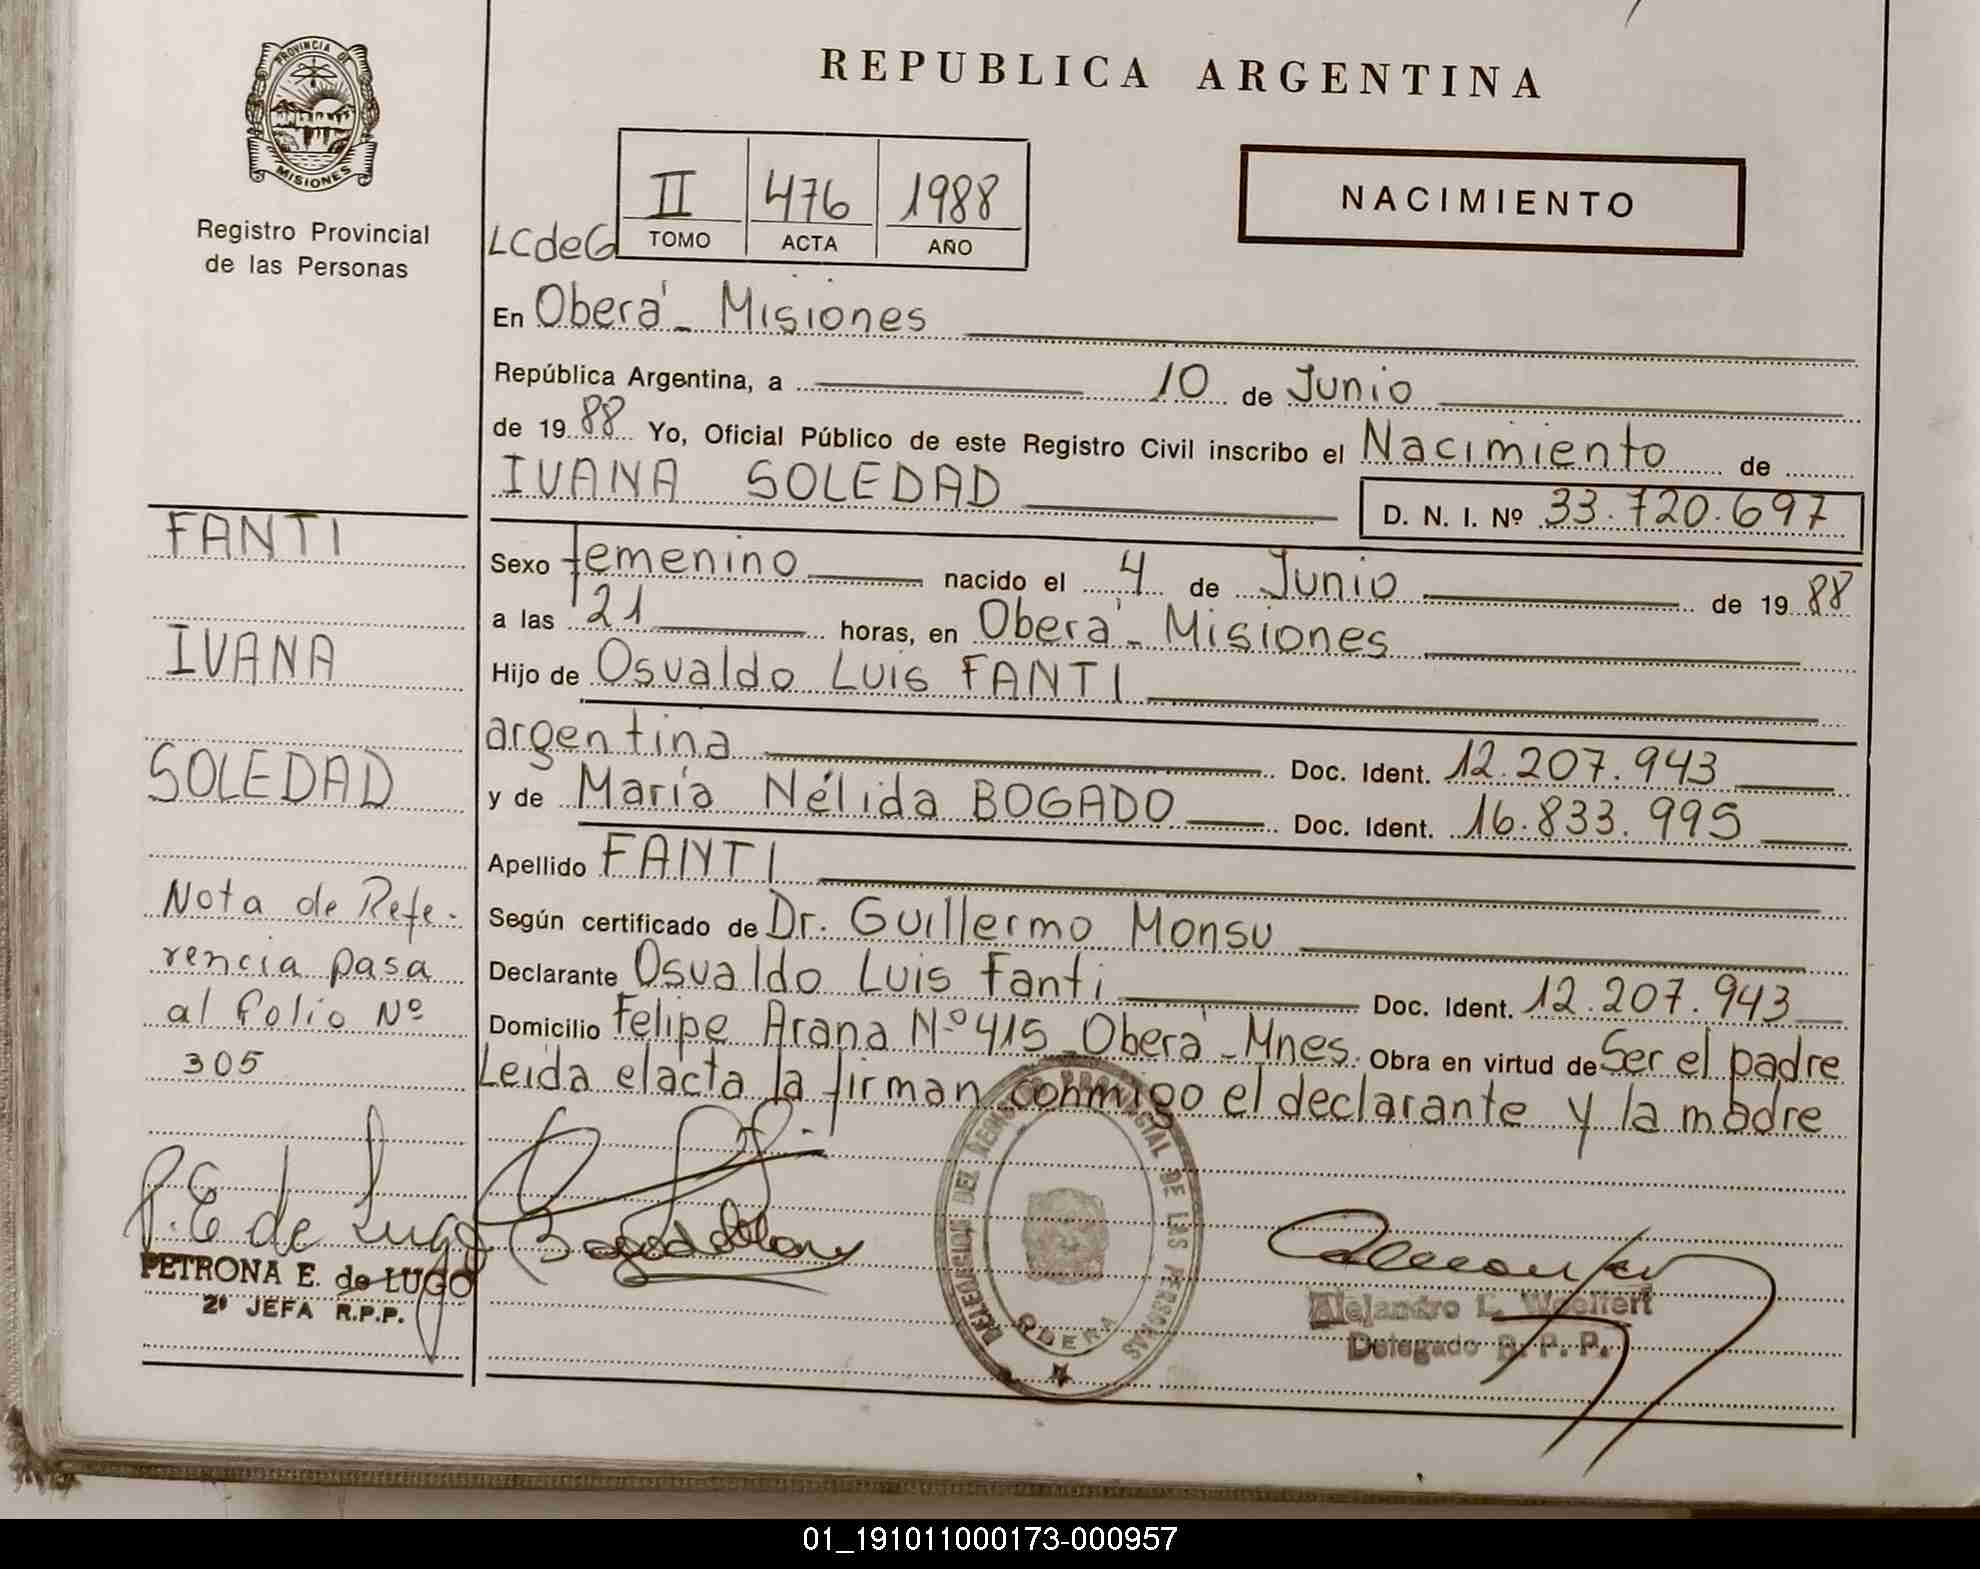 PROVINCIA DE
MISIONES
Registro Provincial
de las Personas
REPUBLICA ARGENTINA
NACIMIENTO
LCdeG
II 476 1988
TOMO ACTA AÑO
En Oberá - Misiones
República Argentina, a 10 de Junio
de 1988 Yo, Oficial Público de este Registro Civil inscribo el Nacimiento de
IVANA SOLEDAD
D. N. I. Nº 33.720.697
Sexo femenino nacido el 4 de Junio de 1988
a las 21 horas, en Oberá - Misiones
Hijo de Osvaldo Luis FANTI
argentina Doc. Ident. 12.207.943
y de María Nélida BOGADO Doc. Ident. 16.833.995
Apellido FANTI
Según certificado de Dr. Guillermo Monsu
Declarante Osvaldo Luis Fanti Doc. Ident. 12.207.943
Domicilio Felipe Arana Nº 415 Oberá - Mnes. Obra en virtud de Ser el padre
Leida el acta la firman conmigo el declarante y la madre
FANTI
IVANA
SOLEDAD
Nota de Refe-
rencia pasa
al folio Nº
305
P. E de Lugo
PETRONA E. de LUGO
2º JEFA R.P.P.
DELEGACION DEL REGISTRO PROVINCIAL DE LAS PERSONAS
OBERA
Alejandro L. Woelfert
Delegado R. P. P.
01_191011000173-000957